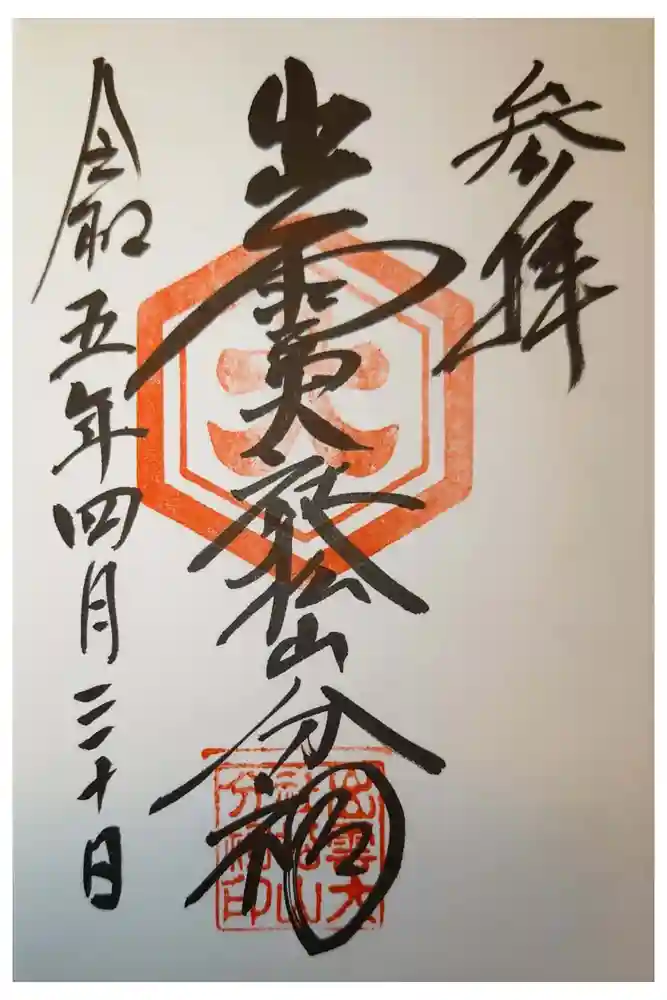 参拝
出雲大社松山分祠
令和五年四月三十日
大
出雲大
社松山
分祠印